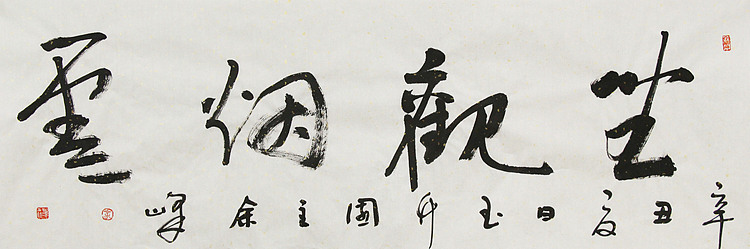 坐觀烟雲
辛丑夏日玉主余峰